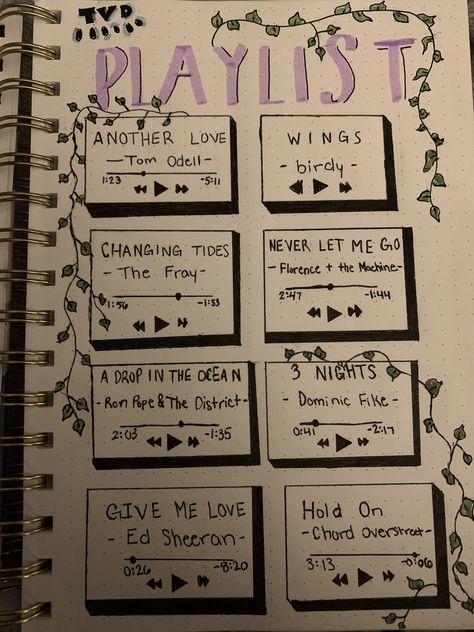 TVD
PLAYLIST
ANOTHER LOVE
- Tom Odell -
1:23 -5:11
WINGS
- birdy -
CHANGING TIDES
- The Fray -
1:56 -1:33
NEVER LET ME GO
- Florence + the Machine -
2:47 -1:44
A DROP IN THE OCEAN
- Ron Pope & The District -
2:03 -1:35
3 NIGHTS
- Dominic Fike -
0:41 -2:17
GIVE ME LOVE
- Ed Sheeran -
0:26 -8:20
Hold On
- Chord Overstreet -
3:13 -0:06